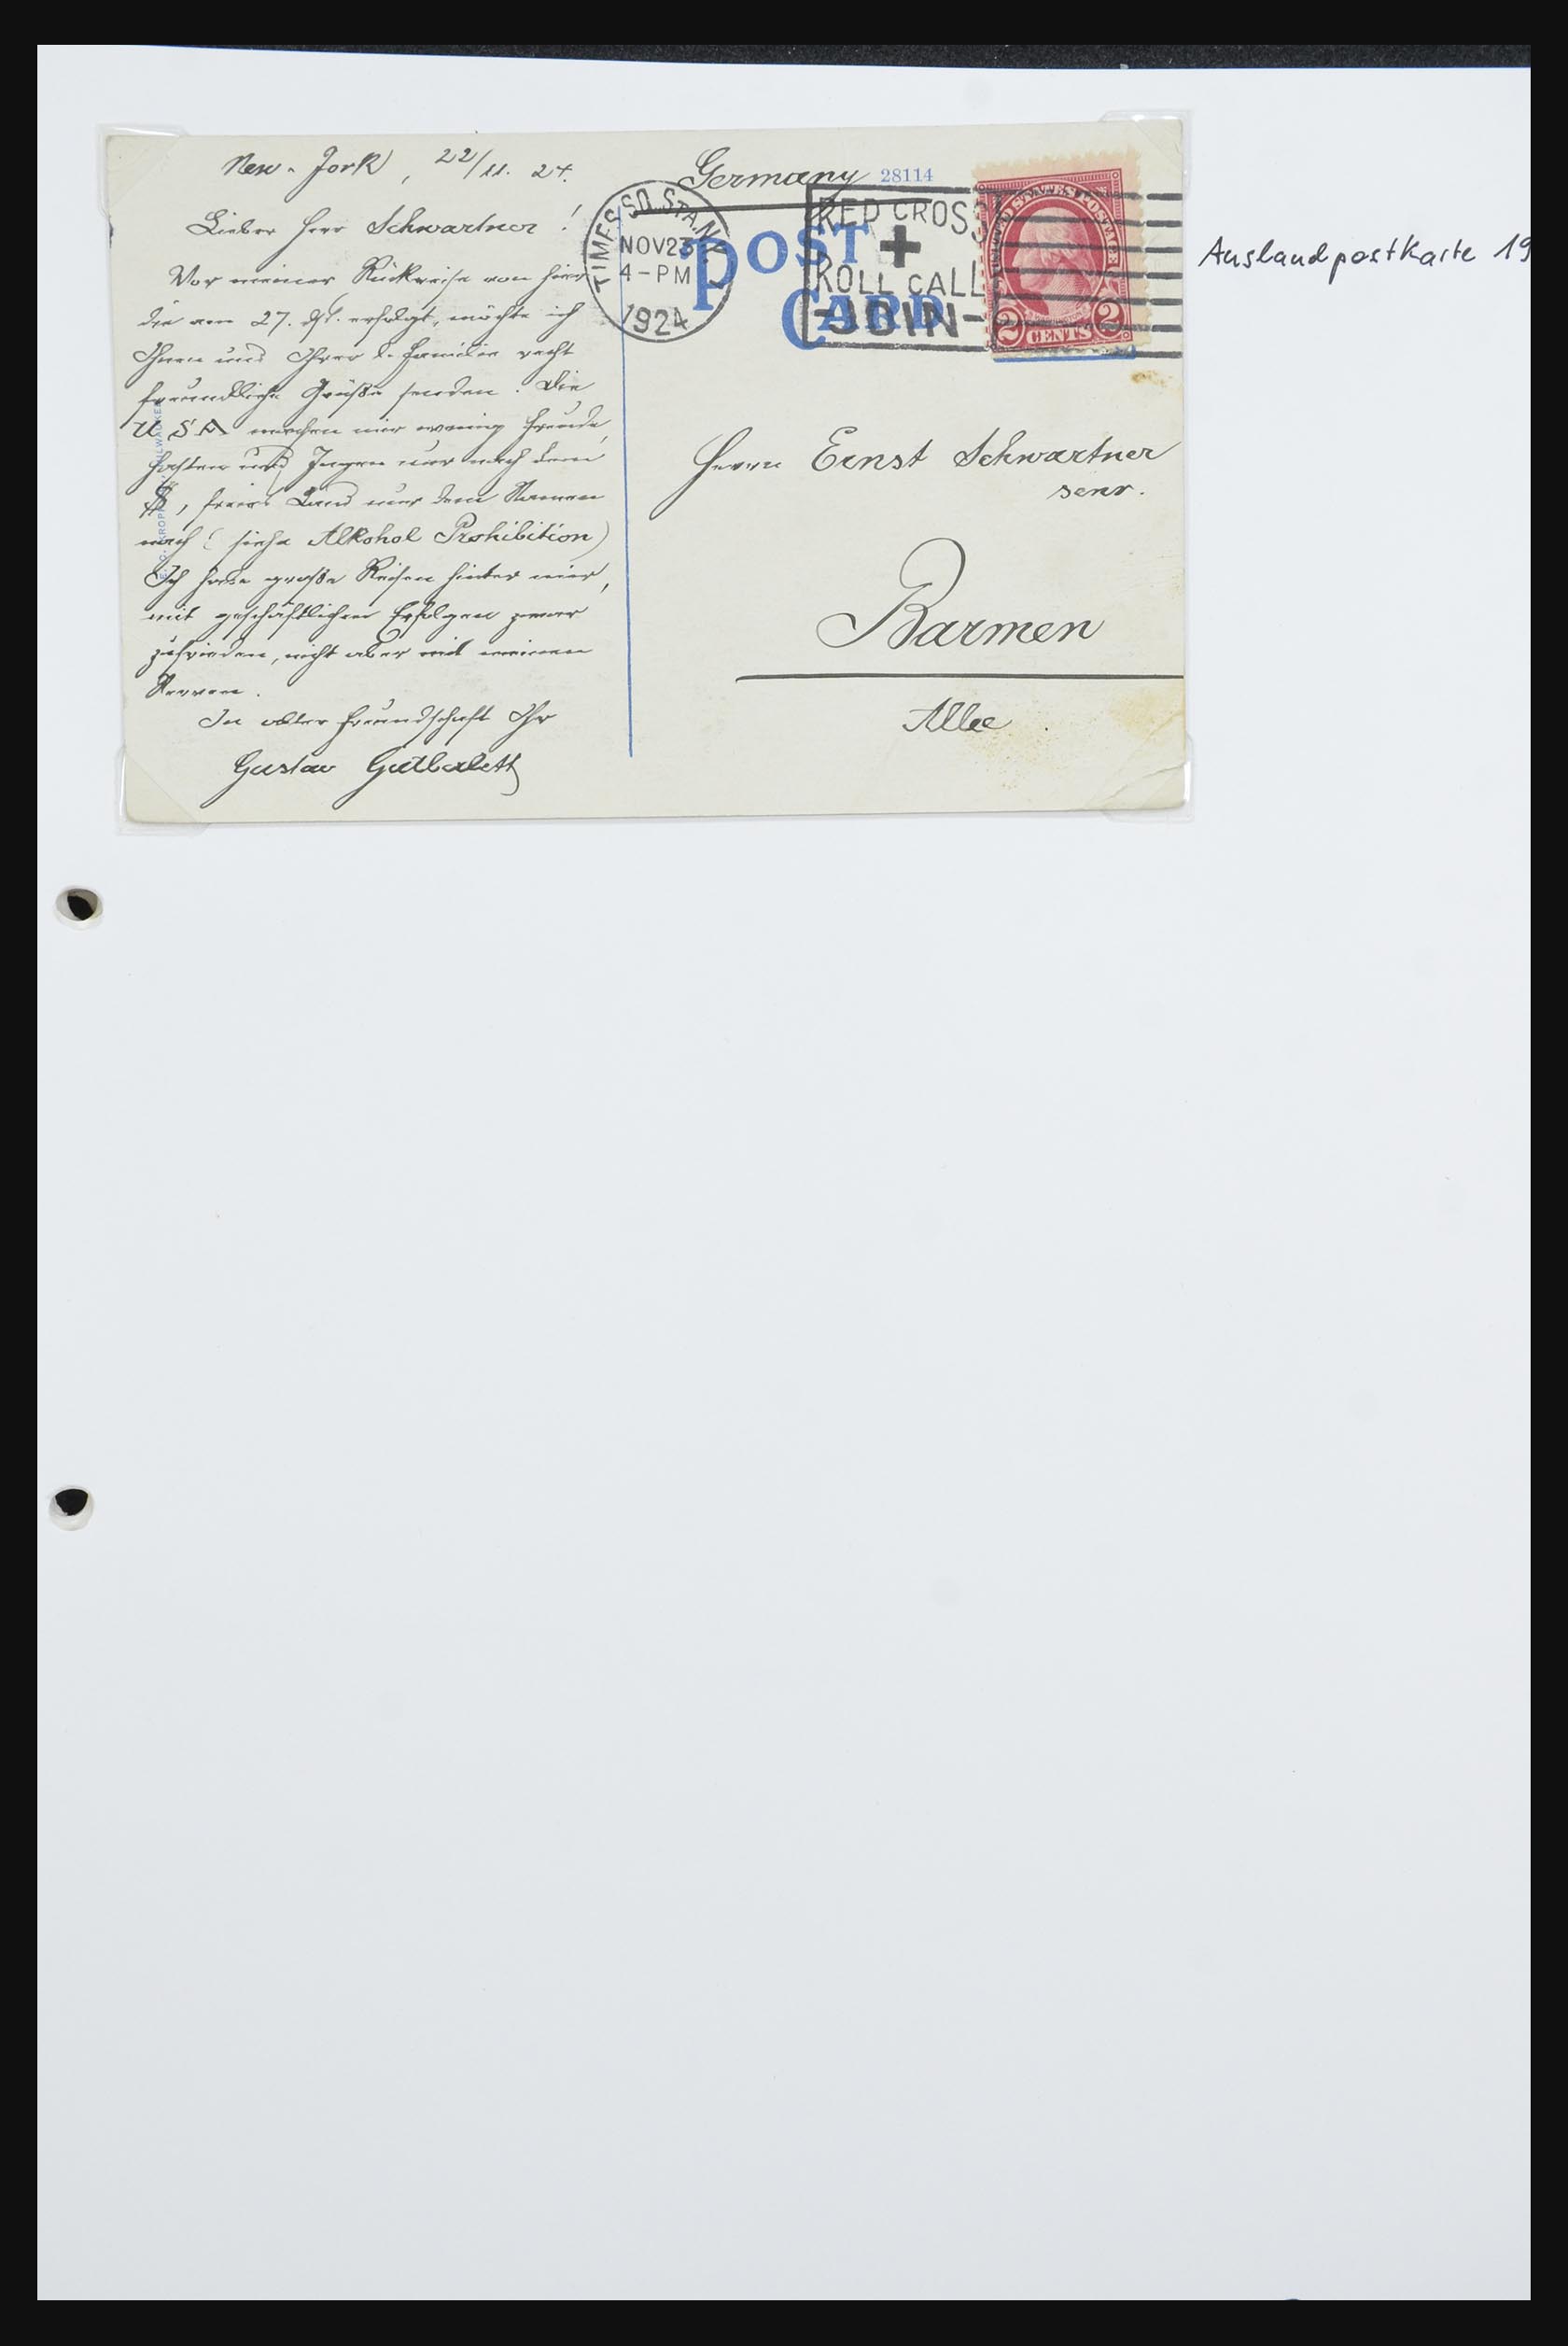 New-Jork, 22/11. 24.
Lieber Herr Schwartner!
Vor meiner Rükreise von hier
die am 27. ds. erfolgt, möchte ich
Ihnen und Ihrer l. Familie recht
freundliche Grüße senden. Die
USA machen mir wenig Freude,
hasten und Jagen nur nach dem
$, freies Land nur dem Namen
nach (siehe Alkohol Prohibition)
Ich habe große Reisen hinter mir,
mit geschäftlichen Erfolgen zwar
zufrieden, nicht aber mit meinen
Nerven.
In alter Freundschaft Ihr
Gustav
Germany
28114
POST
CARD
TIMES SQ. STA. N.Y.
NOV 23
4-PM
1924
RED CROSS
ROLL CALL
-JOIN-
U.S. POSTAGE
2 CENTS 2
Herrn Ernst Schwartner
senr.
Barmen
Allee
Auslandpostkarte 19